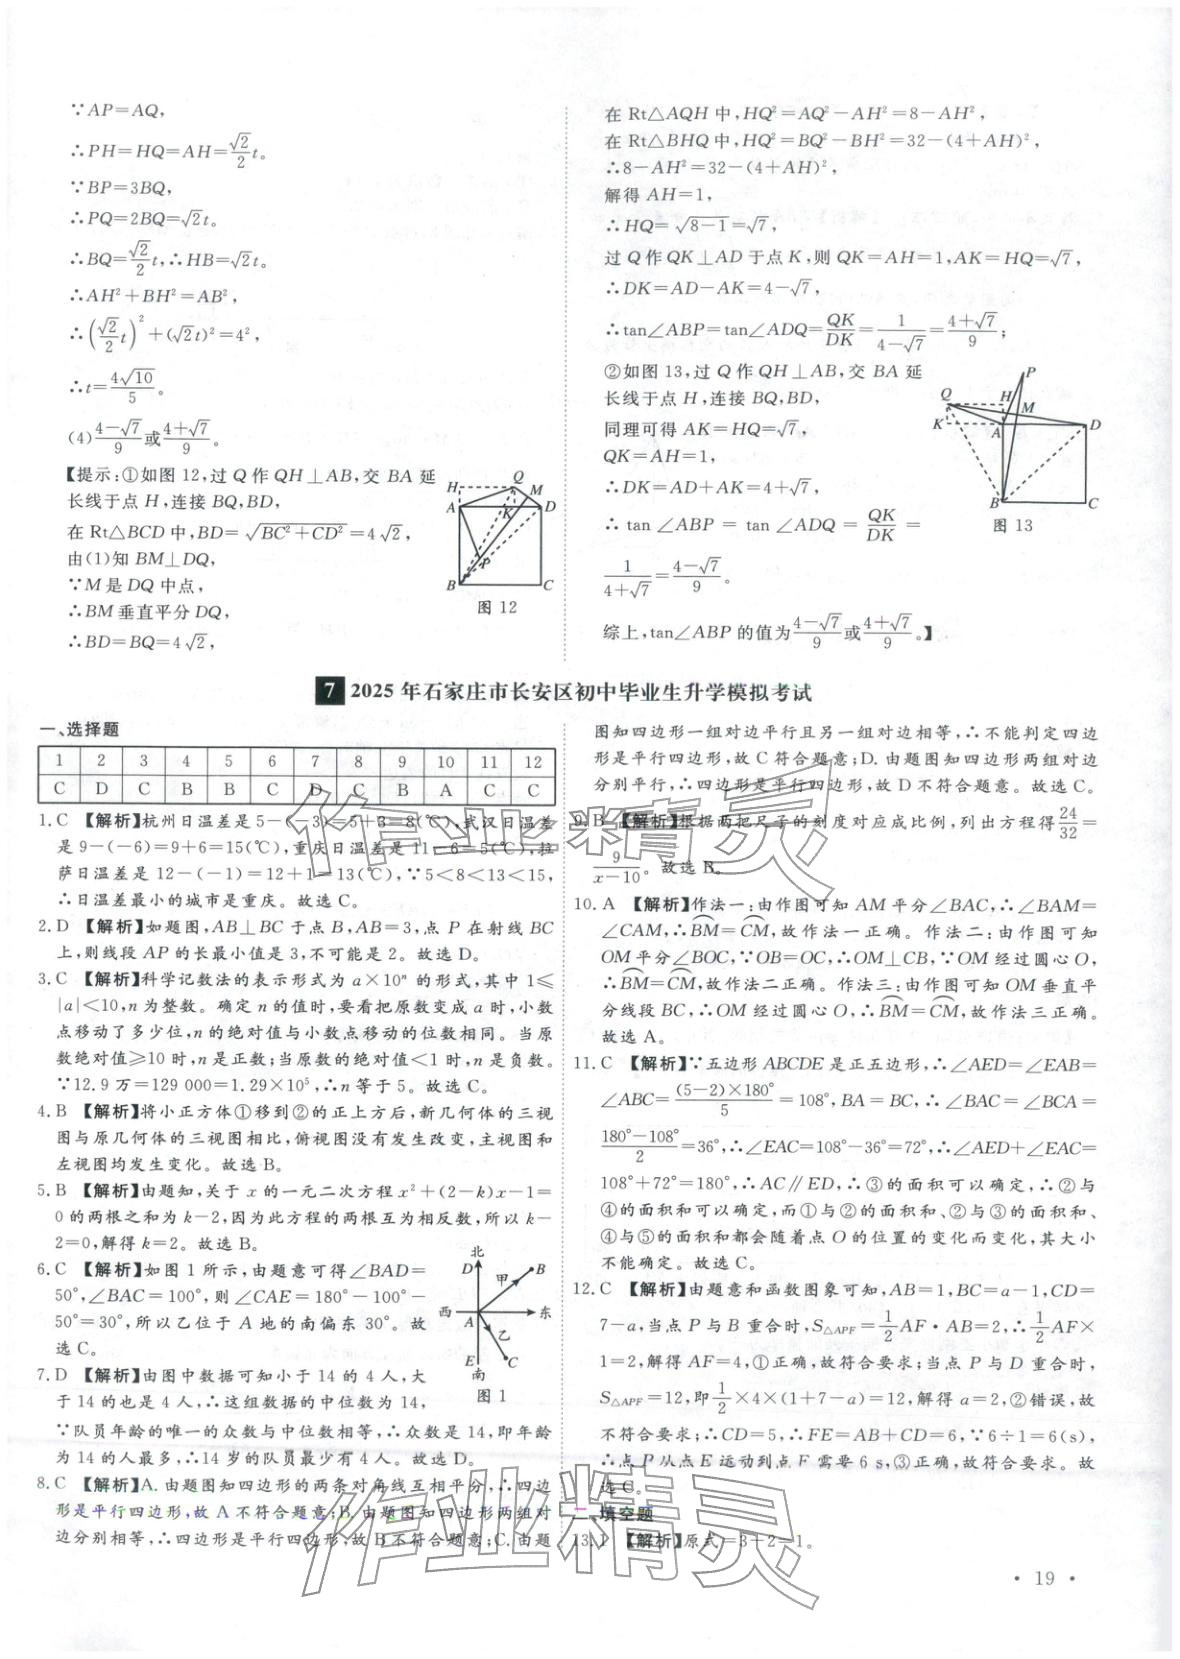 ∵AP=AQ,
∴PH=HQ=AH=√2/2 t。
∵BP=3BQ,
∴PQ=2BQ=√2t。
∴BQ=√2/2 t,∴HB=√2t。
∴AH²+BH²=AB²,
∴(√2/2 t)²+(√2t)²=4²,
∴t=4√10/5。
(4)(4-√7)/9或(4+√7)/9。
【提示:①如图12,过Q作QH⊥AB,交BA延
长线于点H,连接BQ,BD,
在Rt△BCD中,BD=√(BC²+CD²)=4√2,
由(1)知BM⊥DQ,
∵M是DQ中点,
∴BM垂直平分DQ,
∴BD=BQ=4√2,
H Q M A K D P B C
图12
在Rt△AQH中,HQ²=AQ²-AH²=8-AH²,
在Rt△BHQ中,HQ²=BQ²-BH²=32-(4+AH)²,
∴8-AH²=32-(4+AH)²,
解得AH=1,
∴HQ=√(8-1)=√7,
过Q作QK⊥AD于点K,则QK=AH=1,AK=HQ=√7,
∴DK=AD-AK=4-√7,
∴tan∠ABP=tan∠ADQ=QK/DK=1/(4-√7)=(4+√7)/9;
②如图13,过Q作QH⊥AB,交BA延
长线于点H,连接BQ,BD,
同理可得AK=HQ=√7,
QK=AH=1,
∴DK=AD+AK=4+√7,
∴tan∠ABP=tan∠ADQ=QK/DK=
1/(4+√7)=(4-√7)/9。
综上,tan∠ABP的值为(4-√7)/9或(4+√7)/9。】
P Q H M K A D B C
图13
7 2025年石家庄市长安区初中毕业生升学模拟考试
一、选择题
1 2 3 4 5 6 7 8 9 10 11 12
C D C B B C D C B A C C
1.C 【解析】杭州日温差是5-(-3)=5+3=8(℃),武汉日温差
是9-(-6)=9+6=15(℃),重庆日温差是11-6=5(℃),拉
萨日温差是12-(-1)=12+1=13(℃),∵5<8<13<15,
∴日温差最小的城市是重庆。故选C。
2.D 【解析】如题图,AB⊥BC于点B,AB=3,点P在射线BC
上,则线段AP的长最小值是3,不可能是2。故选D。
3.C 【解析】科学记数法的表示形式为a×10ⁿ的形式,其中1≤
|a|<10,n为整数。确定n的值时,要看把原数变成a时,小数
点移动了多少位,n的绝对值与小数点移动的位数相同。当原
数绝对值≥10时,n是正数;当原数的绝对值<1时,n是负数。
∵12.9万=129 000=1.29×10⁵,∴n等于5。故选C。
4.B 【解析】将小正方体①移到②的正上方后,新几何体的三视
图与原几何体的三视图相比,俯视图没有发生改变,主视图和
左视图均发生变化。故选B。
5.B 【解析】由题知,关于x的一元二次方程x²+(2-k)x-1=
0的两根之和为k-2,因为此方程的两根互为相反数,所以k-
2=0,解得k=2。故选B。
6.C 【解析】如图1所示,由题意可得∠BAD=
50°,∠BAC=100°,则∠CAE=180°-100°-
50°=30°,所以乙位于A地的南偏东30°。故
选C。
北 D B 甲 西 A 东 乙 E C 南
图1
7.D 【解析】由图中数据可知小于14的4人,大
于14的也是4人,∴这组数据的中位数为14,
∵队员年龄的唯一的众数与中位数相等,∴众数是14,即年龄
为14的人最多,∴14岁的队员最少有4人。故选D。
8.C 【解析】A.由题图知四边形的两条对角线互相平分,∴四边
形是平行四边形,故A不符合题意;B.由题图知四边形两组对
边分别相等,∴四边形是平行四边形,故B不符合题意;C.由题
图知四边形一组对边平行且另一组对边相等,∴不能判定四边
形是平行四边形,故C符合题意;D.由题图知四边形两组对边
分别平行,∴四边形是平行四边形,故D不符合题意。故选C。
9.B 【解析】根据两把尺子的刻度对应成比例,列出方程得24/32=
9/(x-10)。故选B。
10.A 【解析】作法一:由作图可知AM平分∠BAC,∴∠BAM=
∠CAM,∴BM⌒=CM⌒,故作法一正确。作法二:由作图可知
OM平分∠BOC,∵OB=OC,∴OM⊥CB,∵OM经过圆心O,
∴BM⌒=CM⌒,故作法二正确。作法三:由作图可知OM垂直平
分线段BC,∴OM经过圆心O,∴BM⌒=CM⌒,故作法三正确。
故选A。
11.C 【解析】∵五边形ABCDE是正五边形,∴∠AED=∠EAB=
∠ABC=(5-2)×180°/5=108°,BA=BC,∴∠BAC=∠BCA=
(180°-108°)/2=36°,∴∠EAC=108°-36°=72°,∴∠AED+∠EAC=
108°+72°=180°,∴AC∥ED,∴③的面积可以确定,∴②与
④的面积和可以确定,而①与②的面积和、②与③的面积和、
④与⑤的面积和都会随着点O的位置的变化而变化,其大小
不能确定。故选C。
12.C 【解析】由题意和函数图象可知,AB=1,BC=a-1,CD=
7-a,当点P与B重合时,S△APF=1/2AF·AB=2,∴1/2AF×
1=2,解得AF=4,①正确,故符合要求;当点P与D重合时,
S△APF=12,即1/2×4×(1+7-a)=12,解得a=2,②错误,故
不符合要求;∴CD=5,∴FE=AB+CD=6,∵6÷1=6(s),
∴点P从点E运动到点F需要6 s,③正确,故符合要求。故
选C。
二、填空题
13.1 【解析】原式=3-2=1。
作业精灵
作业精灵
· 19 ·